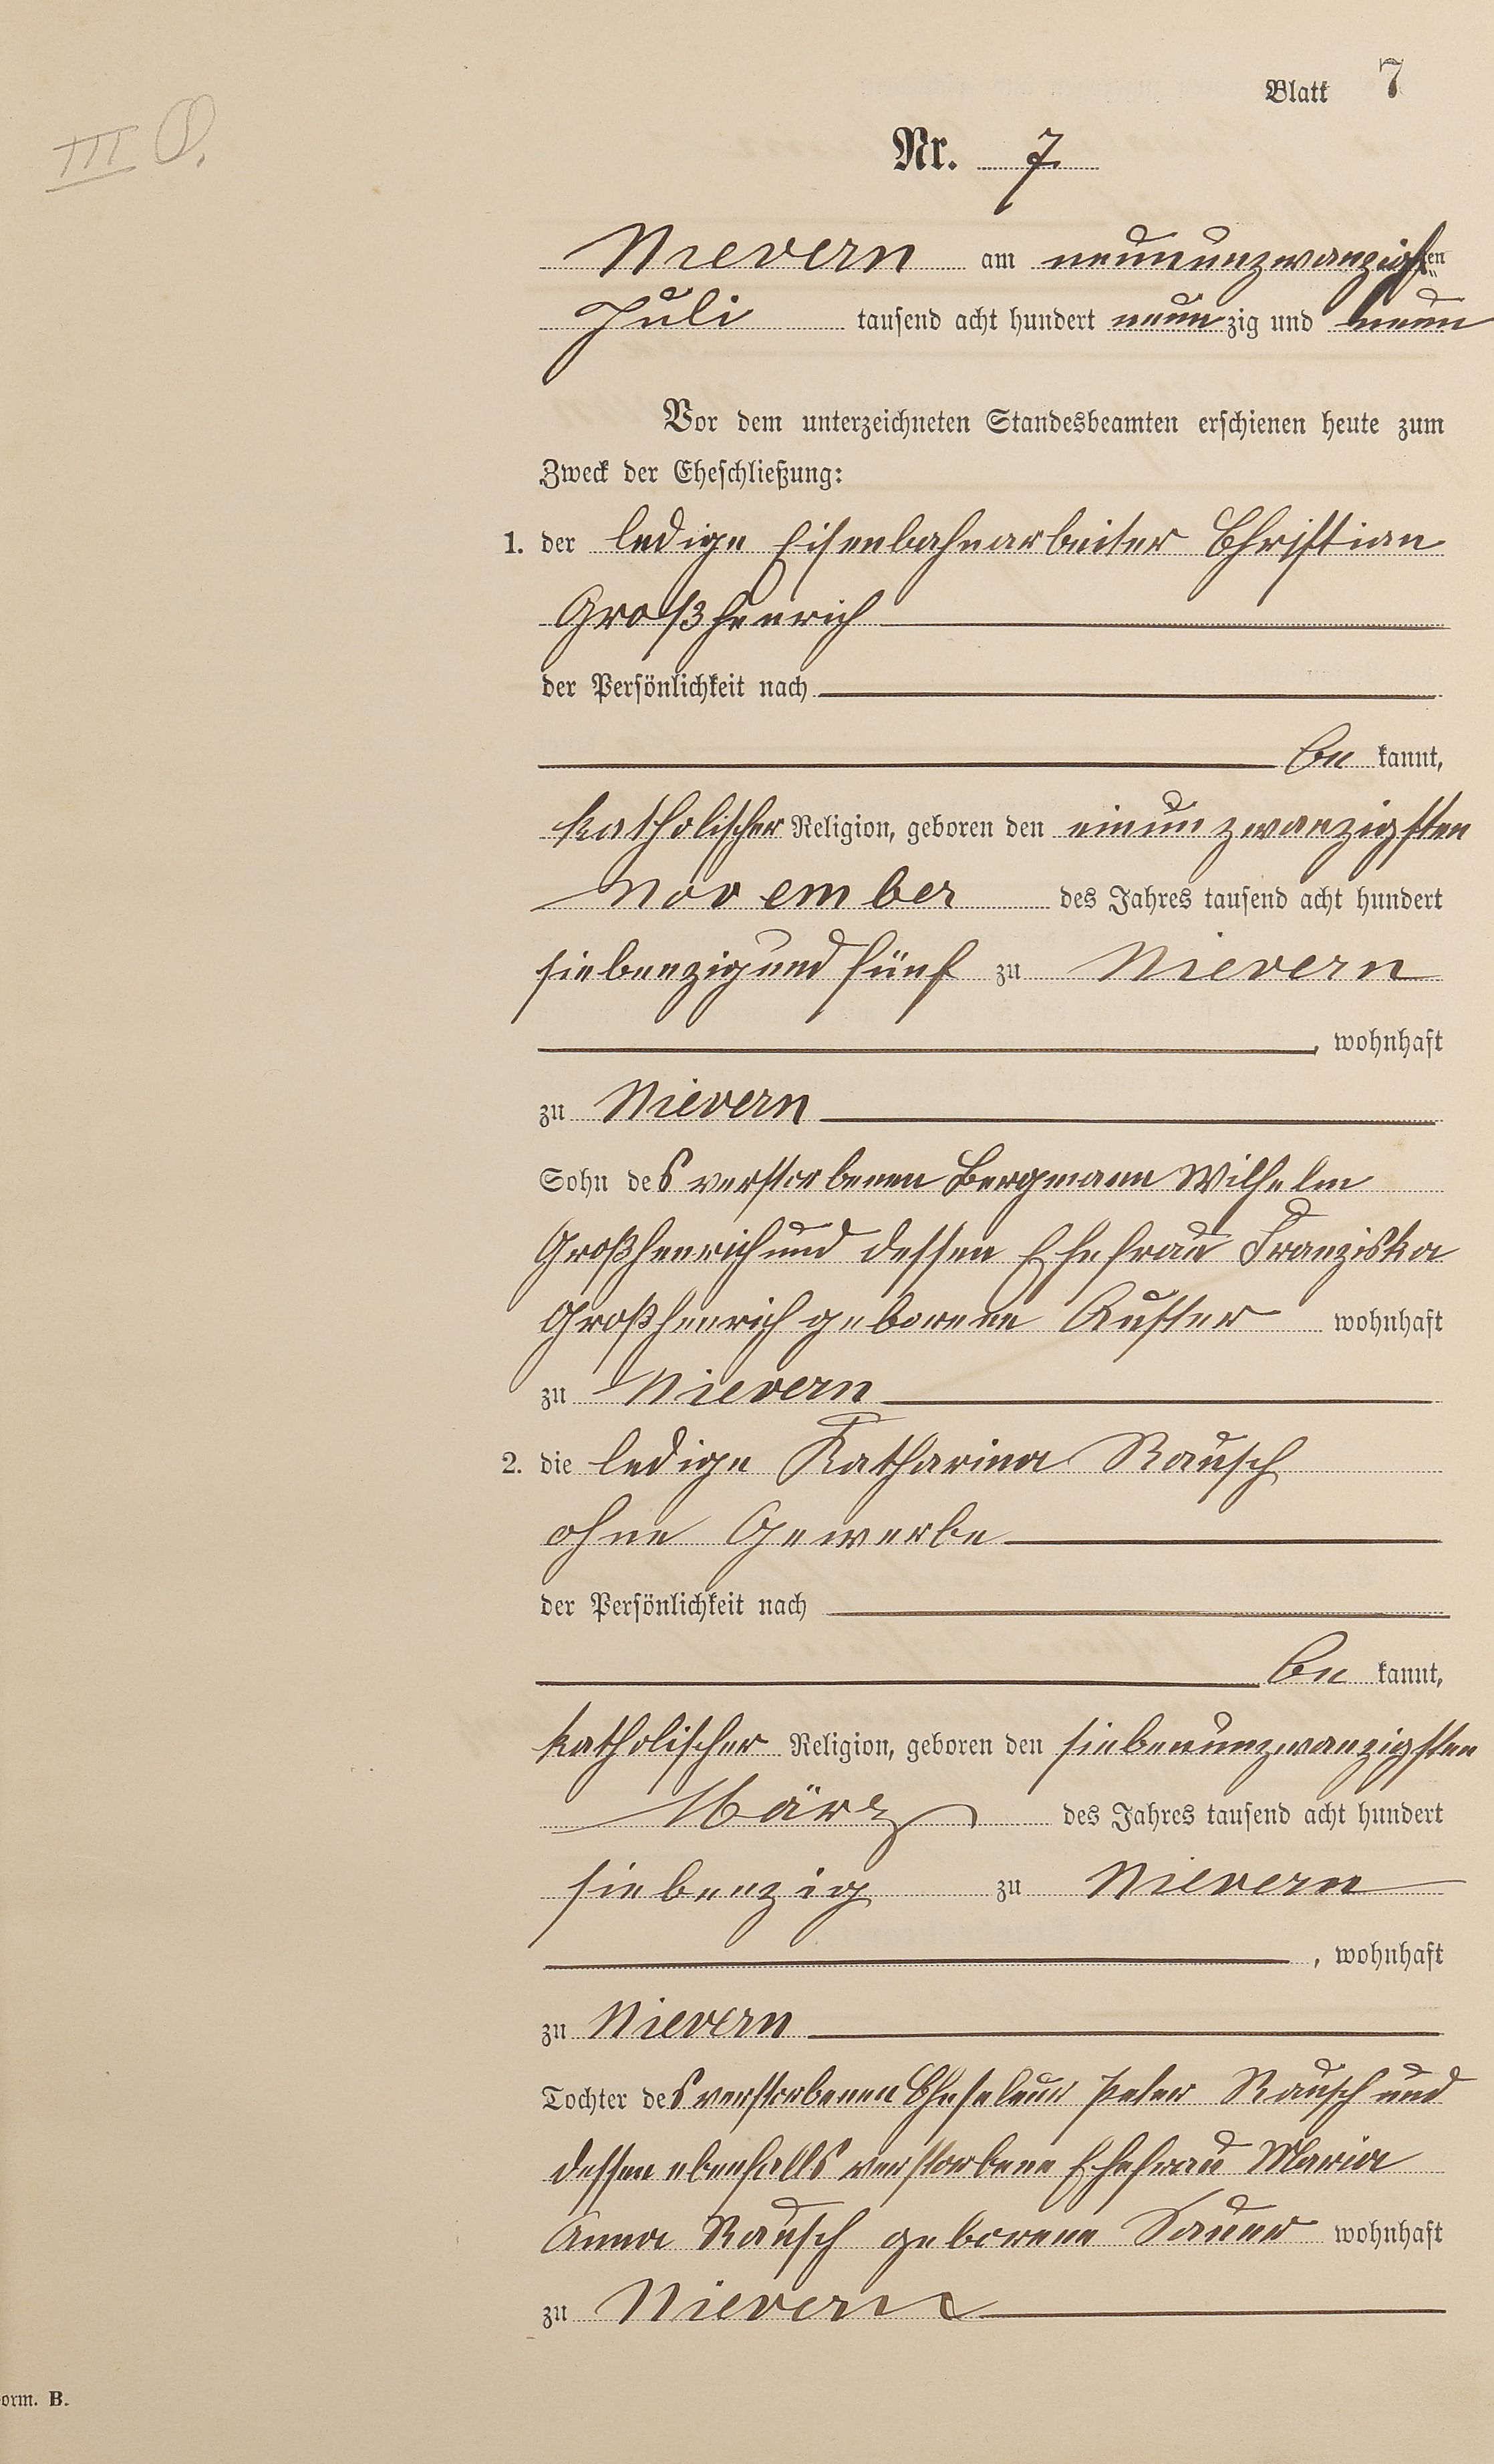 Blatt 7
III O.
Nr. 7
Nievern am neunundzwanzigsten
Juli tausend acht hundert neunzig und neun
Vor dem unterzeichneten Standesbeamten erschienen heute zum
Zweck der Eheschließung:
1. der ledige Eisenbahnarbeiter Christian
Großhenrich
der Persönlichkeit nach
be kannt,
katholischer Religion, geboren den einunzwanzigsten
November des Jahres tausend acht hundert
siebenzigund fünf zu Nievern
, wohnhaft
zu Nievern
Sohn des verstorbenen Bergmann Wilhelm
Großhenrich und dessen Ehefrau Franziska
Großhenrich geborene wohnhaft
zu Nievern
2. die ledige Katharina Rausch
ohne Gewerbe
der Persönlichkeit nach
be kannt,
katholischer Religion, geboren den siebenunzwanzigsten
März des Jahres tausend acht hundert
siebenzig zu Nievern
, wohnhaft
zu Nievern
Tochter des verstorbenen Peter Rausch und
dessen ebenfalls verstorbene Ehefrau Maria
Anna Rausch geborene Sauer wohnhaft
zu Nievern
orm. B.